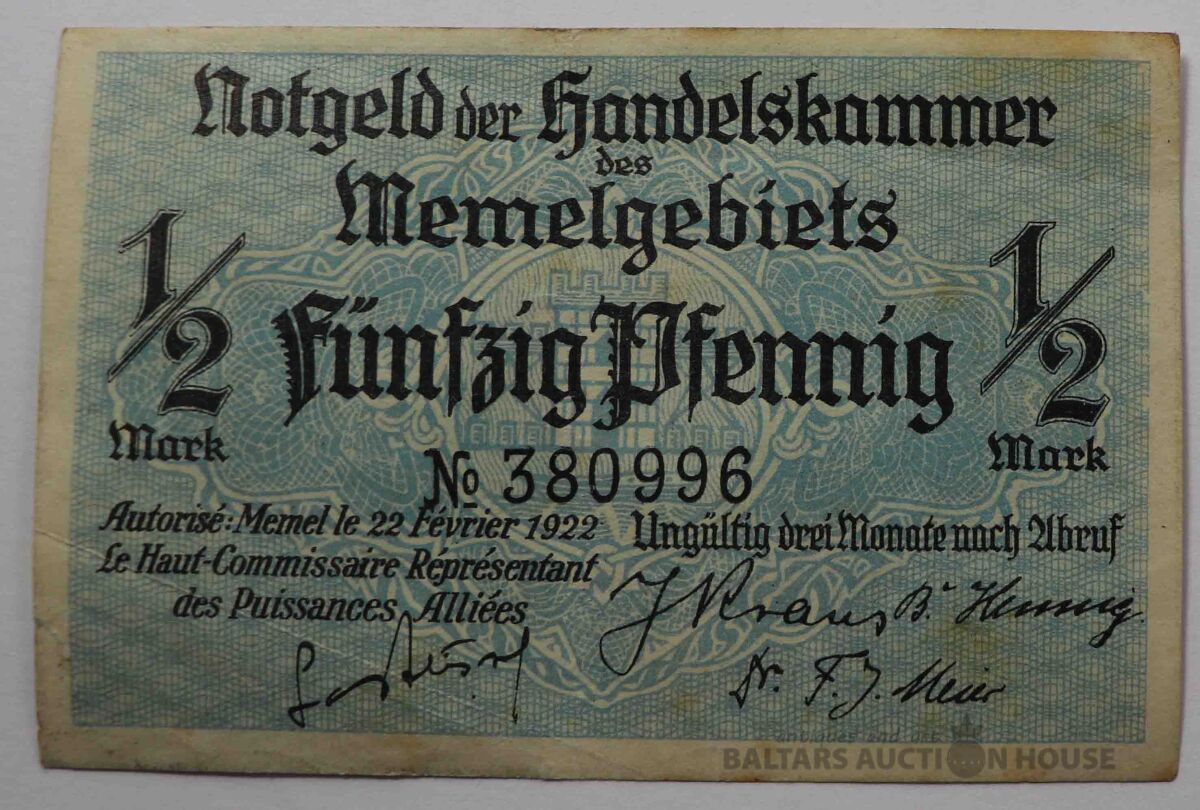 Notgeld der Handelskammer
des
Memelgebiets
1/2
Mark
1/2
Mark
Fünfzig Pfennig
No 380996
Autorisé: Memel le 22 Février 1922
Le Haut-Commissaire Répresentant
des Puissances Alliées
Ungültig drei Monate nach Abruf
J Kraus
Dr. F. J. Meier
BALTARS AUCTION HOUSE